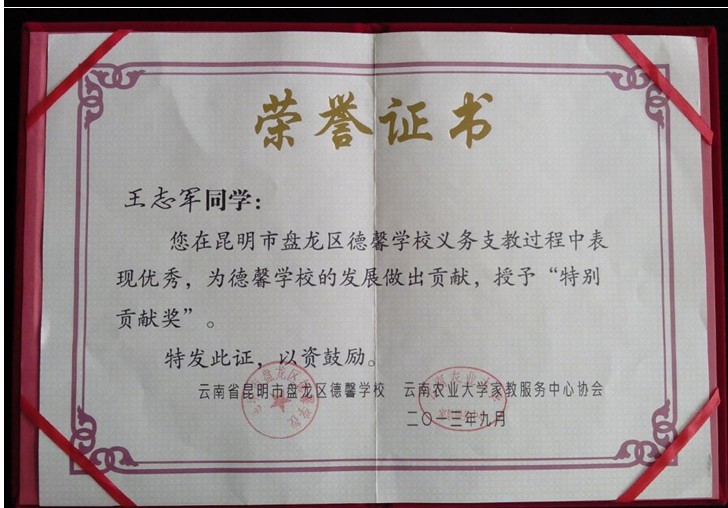 荣誉证书
王志军同学：
您在昆明市盘龙区德馨学校义务支教过程中表
现优秀，为德馨学校的发展做出贡献，授予“特别
贡献奖”。
特发此证，以资鼓励。
云南省昆明市盘龙区德馨学校 云南农业大学家教服务中心协会
二〇一三年九月